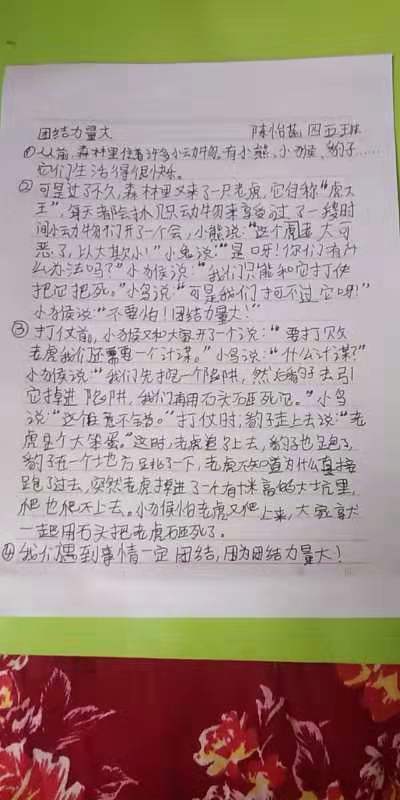 团结力量大 陈怡 四五班
①从前,森林里住着许多小动物。有小熊、小猴、豹子……
它们生活得很快乐。
②可是过了不久,森林里又来了一只老虎,它自称“虎大
王”,每天都会抓几只动物来享受,过了一段时
间小动物们开了一个会,小熊说:“这个老虎太可
恶了,以大欺小!”小兔说:“是呀!你们有什
么办法吗?”小猴说:“我们只能和它打仗
把它把死。”小鸟说:“可是我们打不过它呀!”
小猴说:“不要怕!团结力量大!”
③打仗前,小猴又和大家开了个说:“要打败
老虎我们还需要一个计谋。”小鸟说:“什么计谋?”
小猴说:“我们先挖一个陷阱,然后豹子去引
它掉进陷阱,我们再用石头砸死它。”小鸟
说:“这谁竟不全
打仗时,豹子走上去说:“老
虎是个大笨蛋。”这时,老虎追了上去,豹子也跑了,
豹子在一个地方跳了一下,老虎不知道为什么直接
跑了过去,突然老虎掉进了一个有十米高的大坑里,
爬也爬不上去。小猴怕老虎又爬上来,大家就
一起用石头把老虎砸死了。
④我们遇到事情一定团结,因为团结力量大!